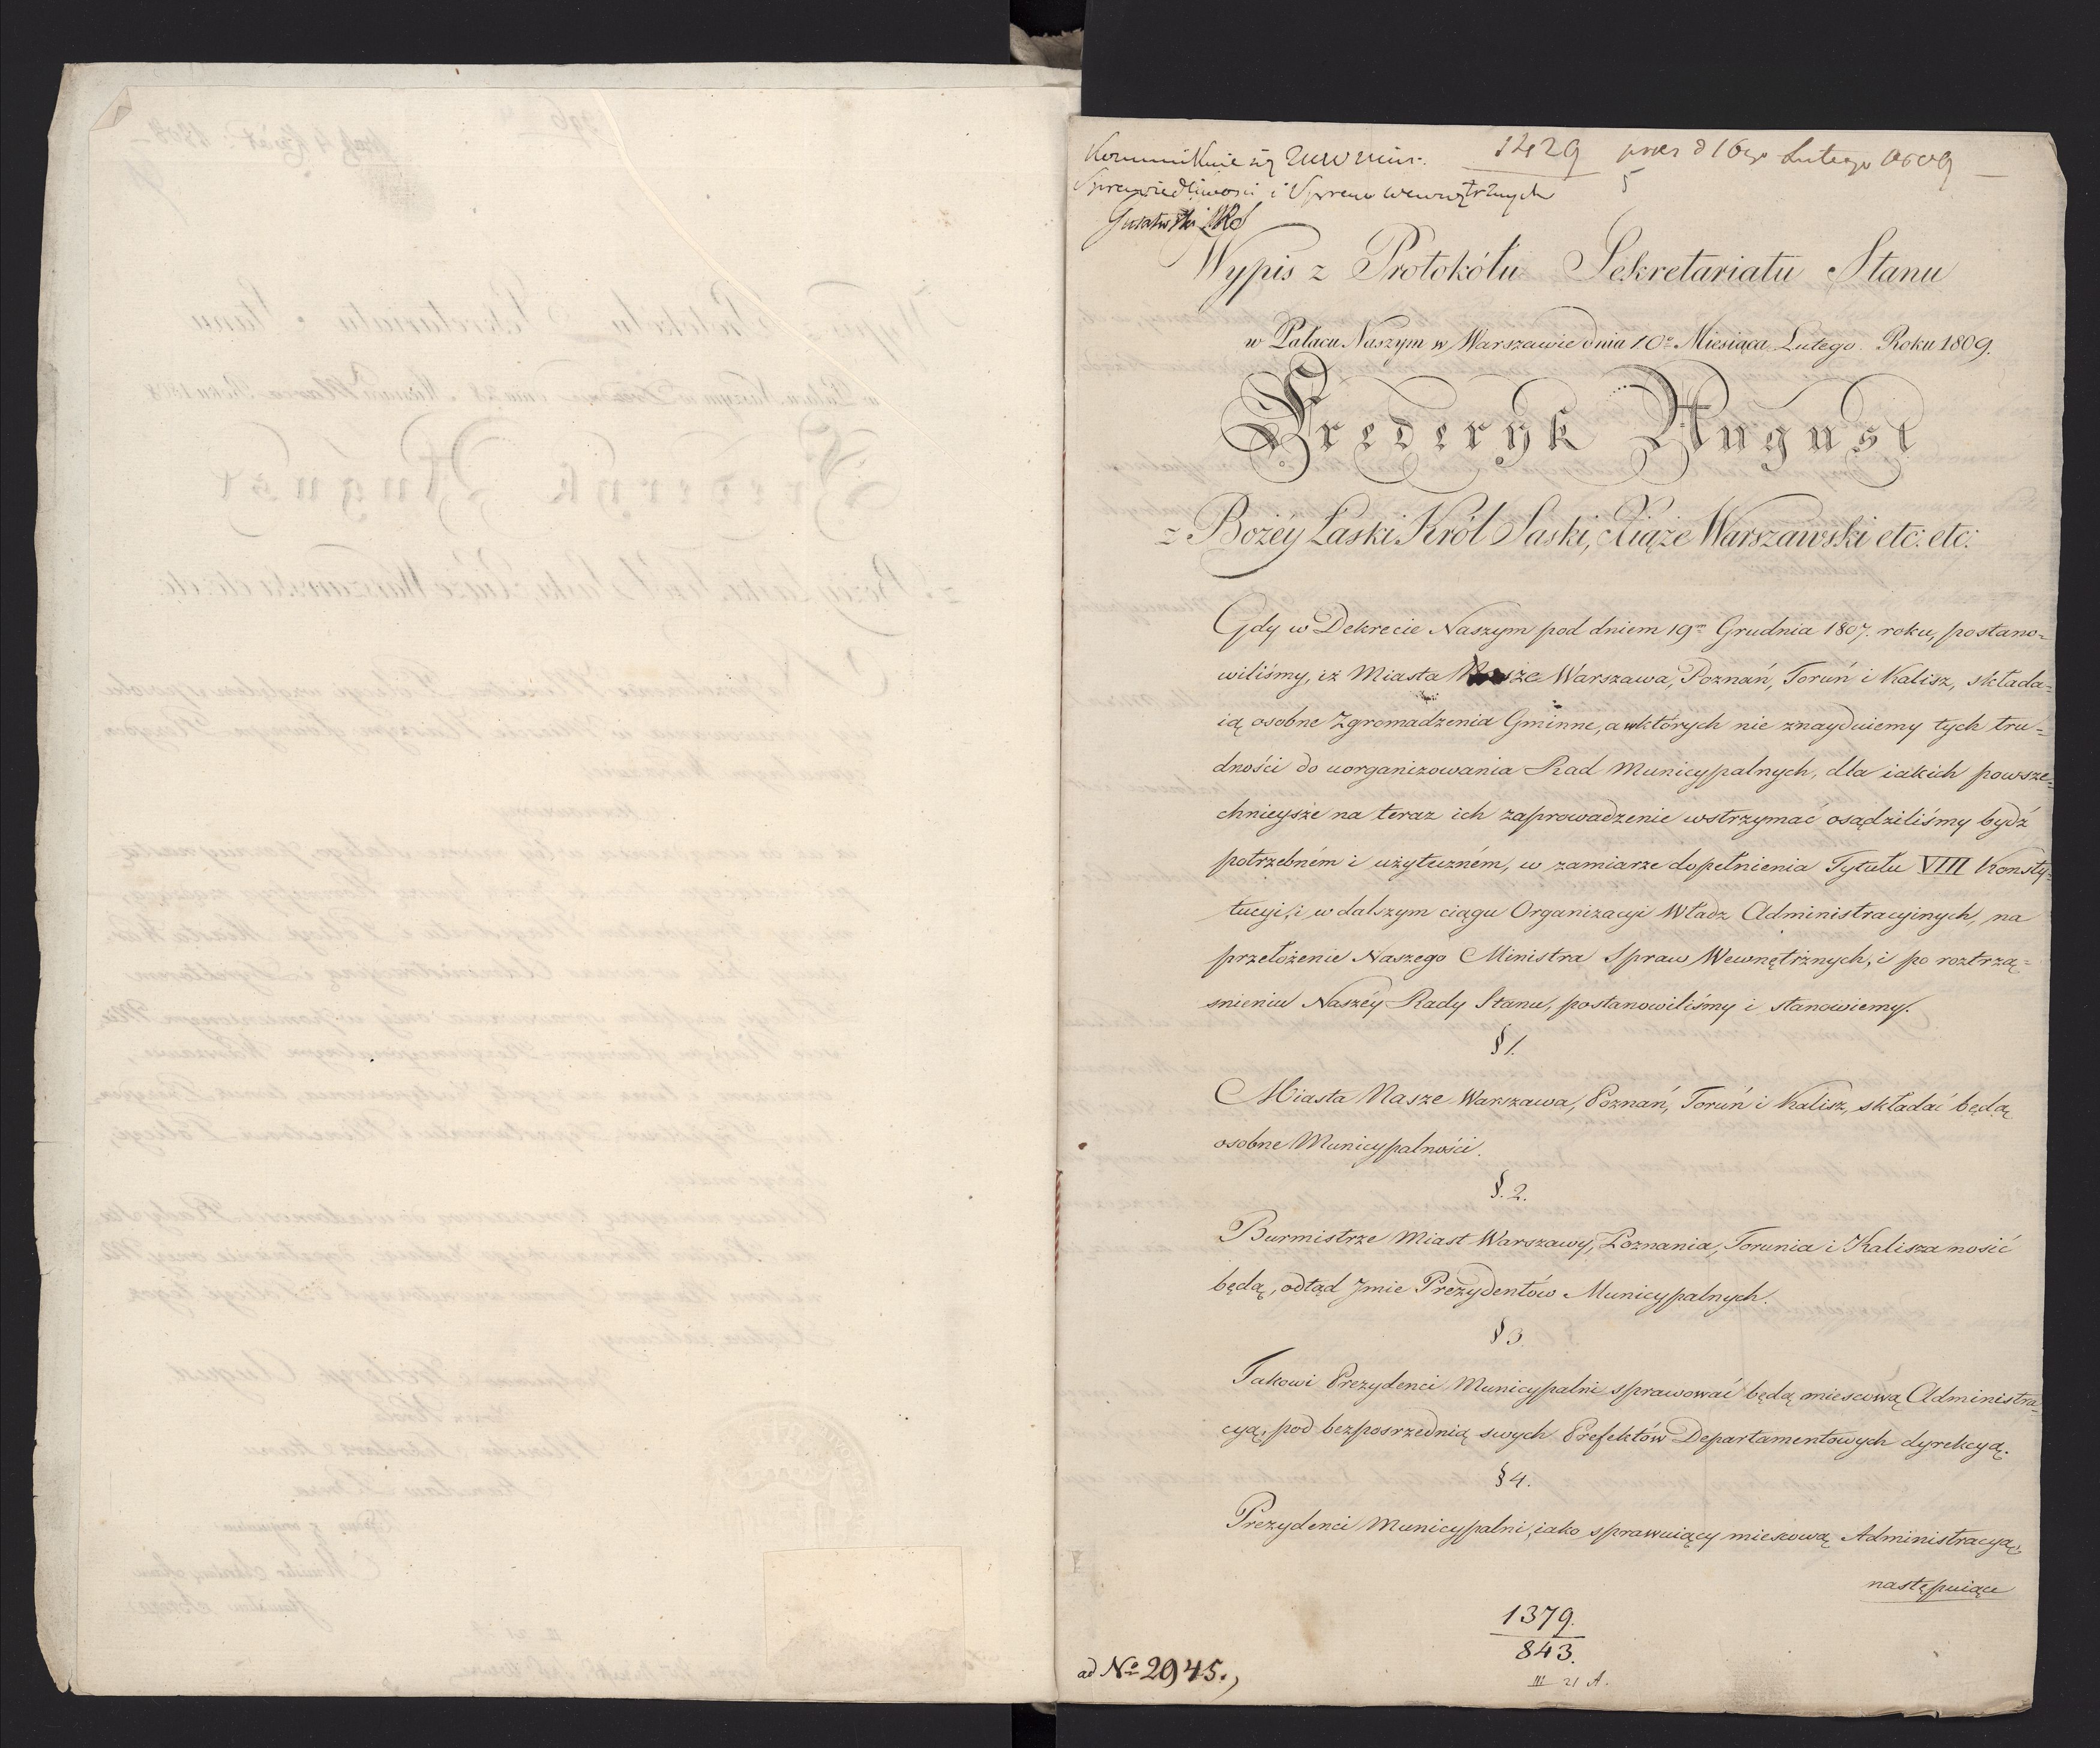 1429
5
praes d 16go Lutego 1809
Kommunikuie się
Sprawiedliwości i Spraw wewnętrznych
Wypis z Protokółu Sekretariatu Stanu
w Pałacu Naszym w Warszawie dnia 10o Miesiąca Lutego Roku 1809.
Frederyk August
z Bożéy Łaski Król Saski, Xiąże Warszawski etc: etc:
Gdy w Dekrecie Naszym pod dniem 19m Grudnia 1807. roku, postano=
wiliśmy, iż Miasta Nasze Warszawa, Poznań, Toruń i Kalisz, składa=
ią osobne Zgromadzenia Gminne, a w których nie znayduiemy tych tru=
dności do uorganizowania Rad Municypalnych, dla iakich powsze=
chnieysze na teraz ich zaprowadzenie wstrzymać osądziliśmy bydź
potrzebném i użyteczném, w zamiarze dopełnienia Tytułu VIII Konsty=
tucyi, i w dalszym ciągu Organizacyi Władz Administracyinych, na
przełożenie Naszego Ministra Spraw Wewnętrznych, i po roztrzą=
śnieniu Naszéy Rady Stanu, postanowiliśmy i stanowiemy.
§ 1.
Miasta Nasze Warszawa, Poznań, Toruń i Kalisz, składać będą
osobne Municypalności.
§. 2.
Burmistrze Miast Warszawy, Poznania, Torunia i Kalisza nosić
będą, odtąd Jmie Prezydentów Municypalnych.
§ 3.
Takowi Prezydenci Municypalni sprawować będą miescową Administra=
cyą, pod bezposrzednią swych Prefektów Departamentowych dyrekcyą.
§ 4.
Prezydenci Municypalni, iako sprawuiący miescową Administracyą,
następuiące
1379.
843.
III 21 A.
ad No 2945.,